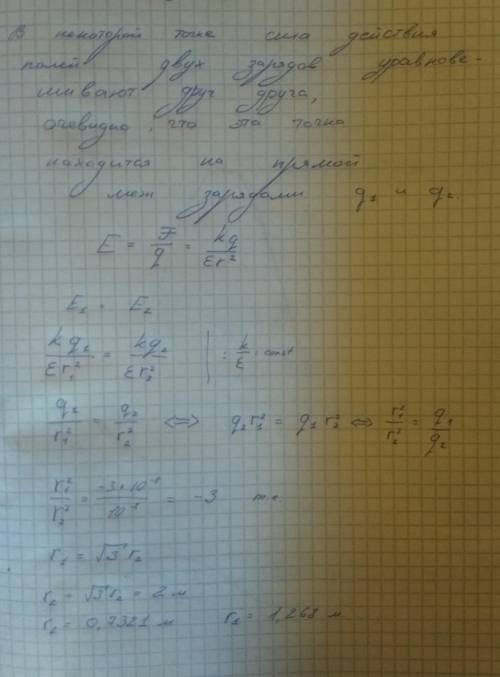 В некоторой точке сила действия
полей двух зарядов уравнове-
шивают друг друга,
очевидно, что эта точка
находится на прямой
меж зарядами q₁ и q₂.
E = F/q = kq/εr²
E₁ = E₂
kq₁/εr₁² = kq₂/εr₂² | : k/ε = const
q₁/r₁² = q₂/r₂² ⟺ q₂r₁² = q₁r₂² ⟺ r₁²/r₂² = q₁/q₂
r₁²/r₂² = = -3
r₁ = √3 r₂
= √3 r₂ = 2 м
= 0,7321 м r₁ = 1,268 м